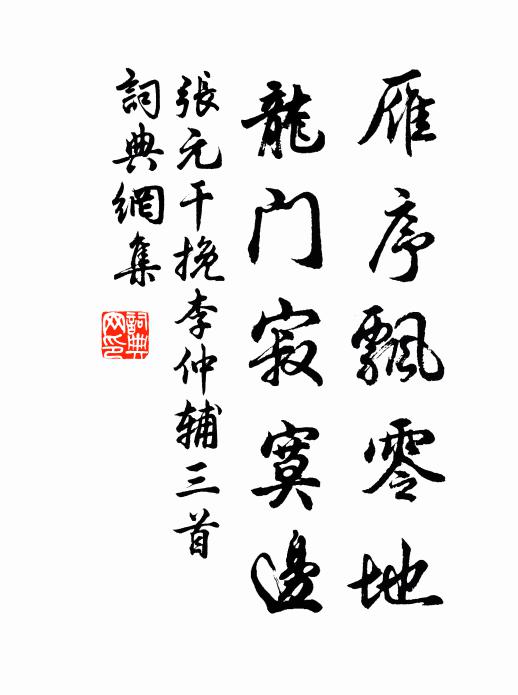 雁序飄零地
龍门寂寞邊
張元干挽李仲辅三首
詞典網集
詞典网印